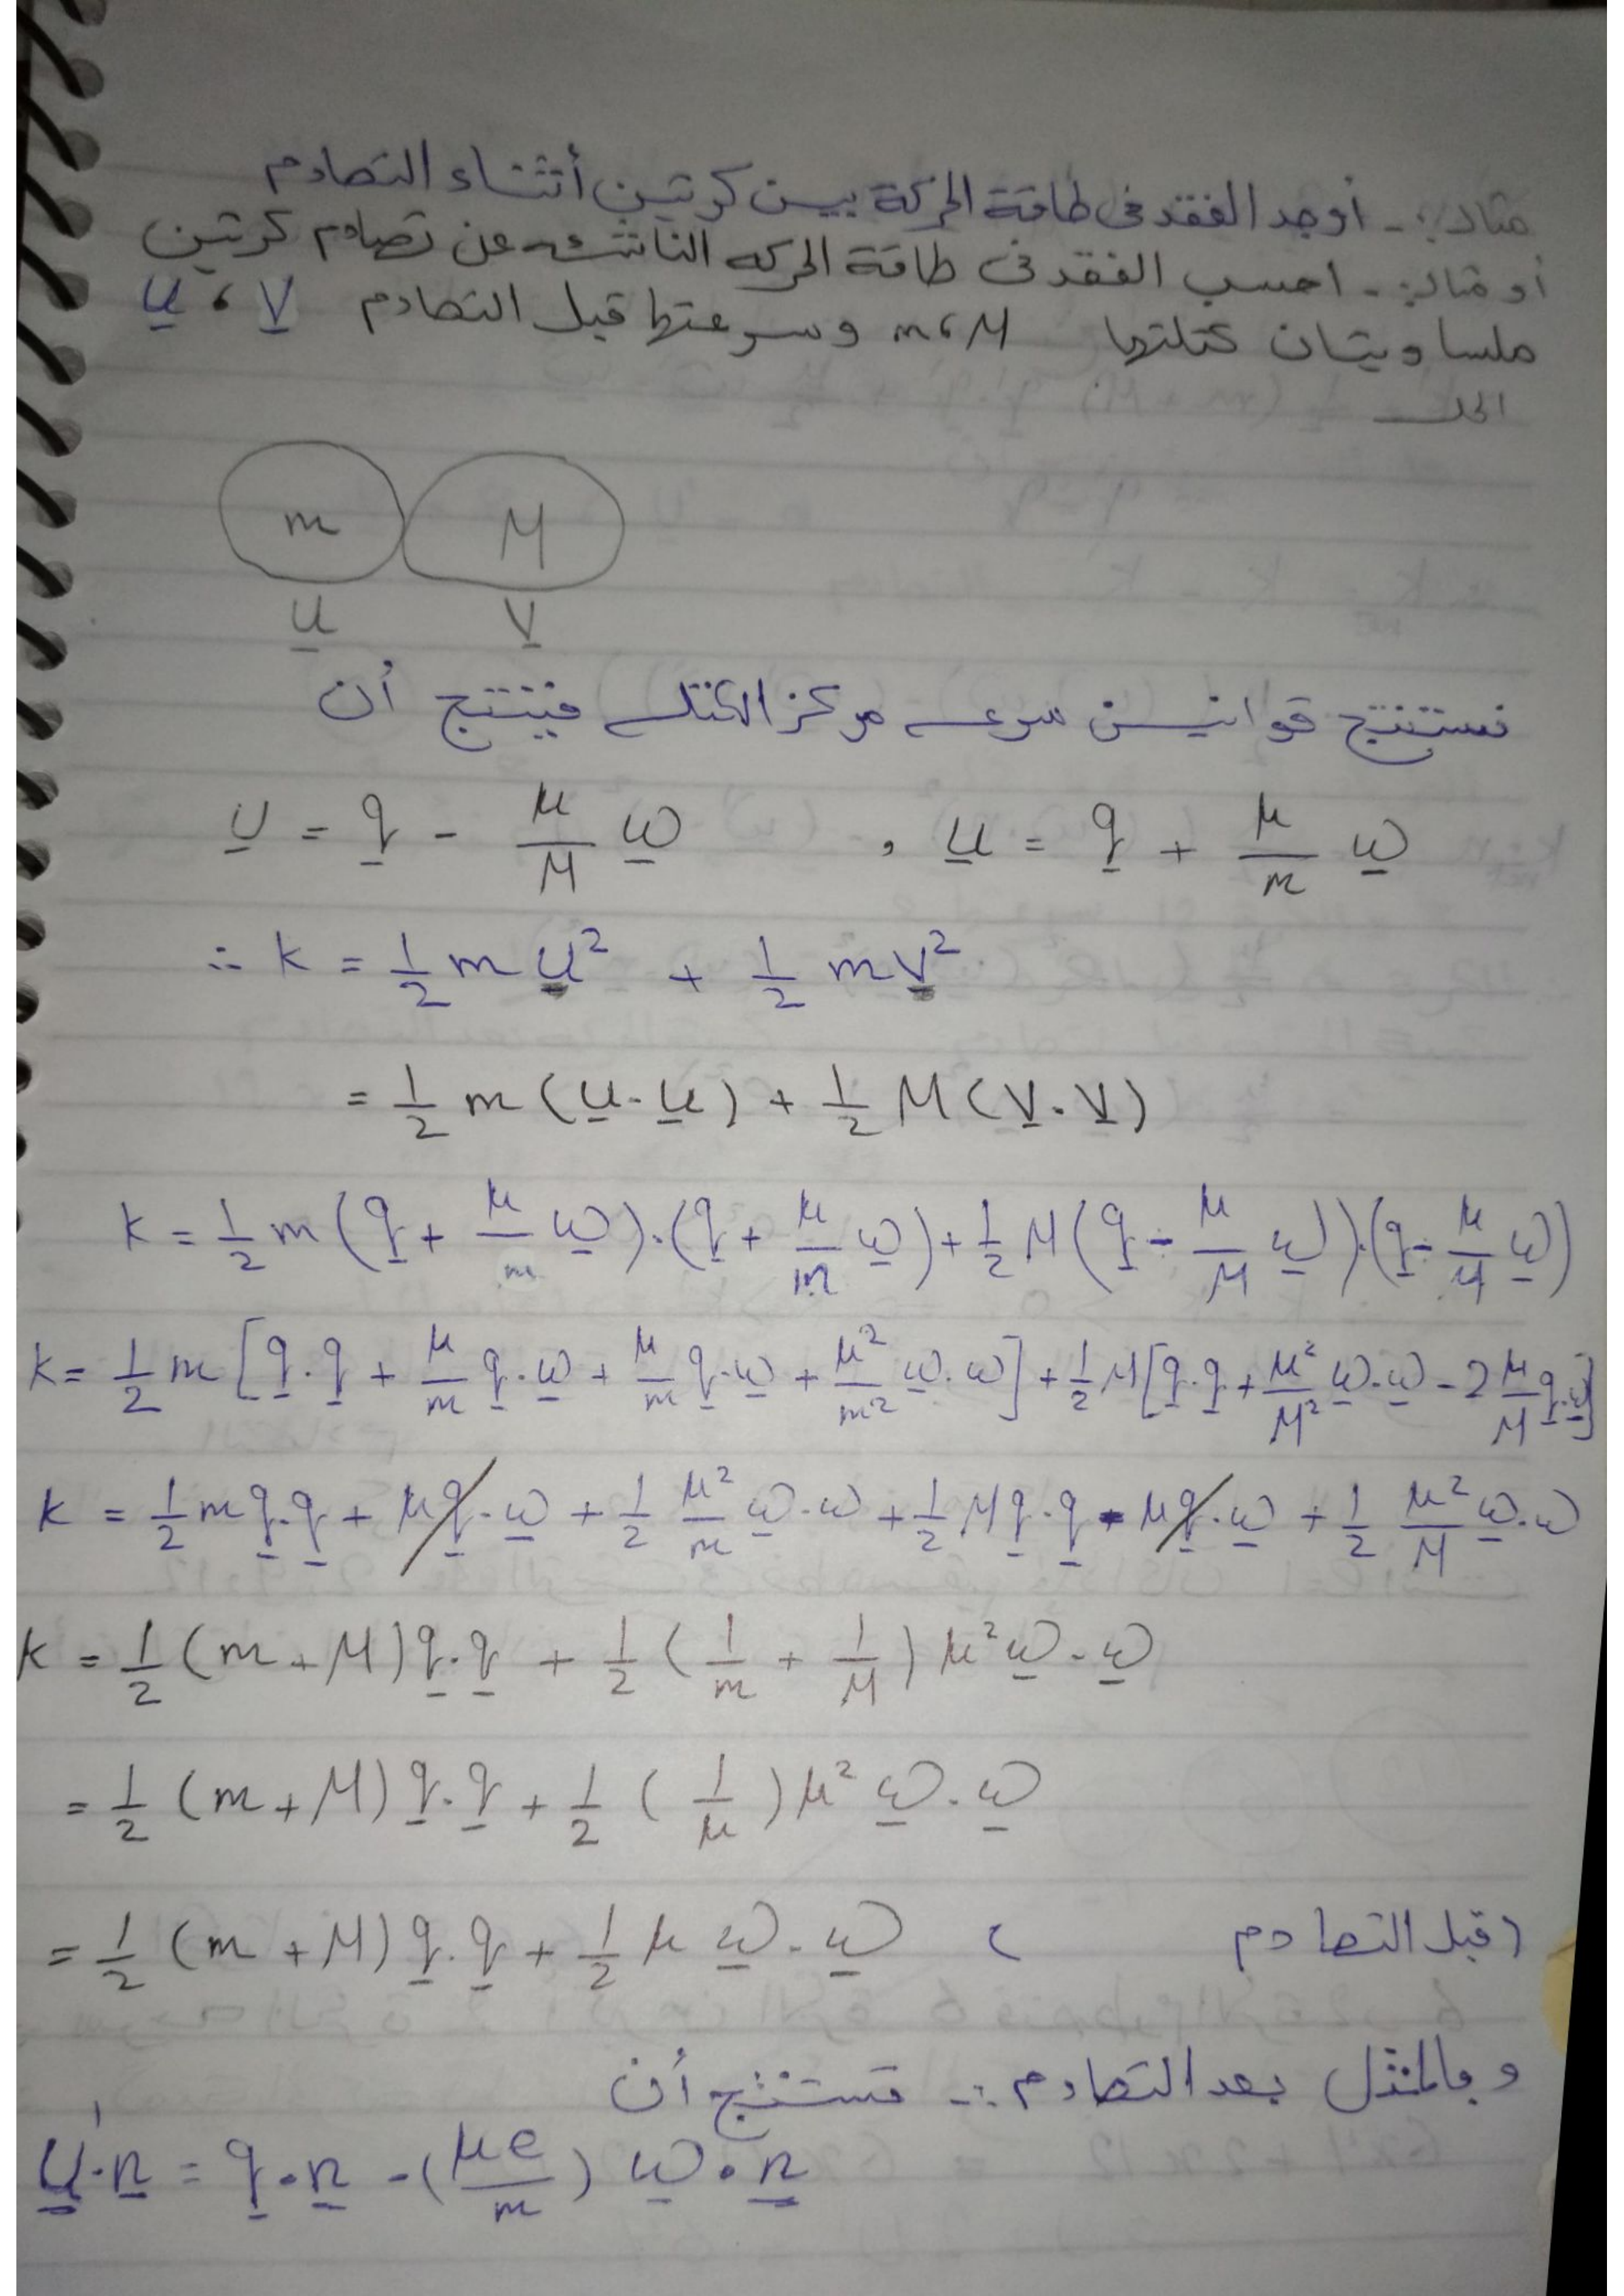 مثال:- أوجد الفقد فى طاقة الحركة بين كرتين أثناء التصادم
أو مثال:- احسب الفقد فى طاقة الحركه الناتئه عن تصادم كرتين
ملساويتان كتلتها m، M وسرعتها قبل التصادم u، v
الحل
m M
u v
نستنتج قوانين سرعه مركز الكتله فينتج أن
v = q - μ/M ω , u = q + μ/m ω
∴ k = 1/2 m u² + 1/2 m v²
= 1/2 m (u·u) + 1/2 M (v·v)
k = 1/2 m (q + μ/m ω)·(q + μ/m ω) + 1/2 M (q - μ/M ω)·(q - μ/M ω)
k = 1/2 m [q·q + μ/m q·ω + μ/m q·ω + μ²/m² ω·ω] + 1/2 M [q·q + μ²/M² ω·ω - 2 μ/M q·ω]
k = 1/2 m q·q + μq·ω + 1/2 μ²/m ω·ω + 1/2 M q·q - μq·ω + 1/2 μ²/M ω·ω
k = 1/2 (m+M) q·q + 1/2 (1/m + 1/M) μ² ω·ω
= 1/2 (m+M) q·q + 1/2 (1/μ) μ² ω·ω
= 1/2 (m+M) q·q + 1/2 μ ω·ω (قبل التصادم)
وبالمثل بعد التصادم :- نستنتج أن
u'·n = q·n - (μe/m) ω·n